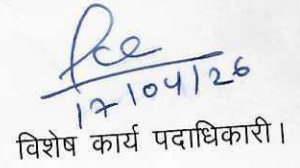 17/04/26
विशेष कार्य पदाधिकारी।